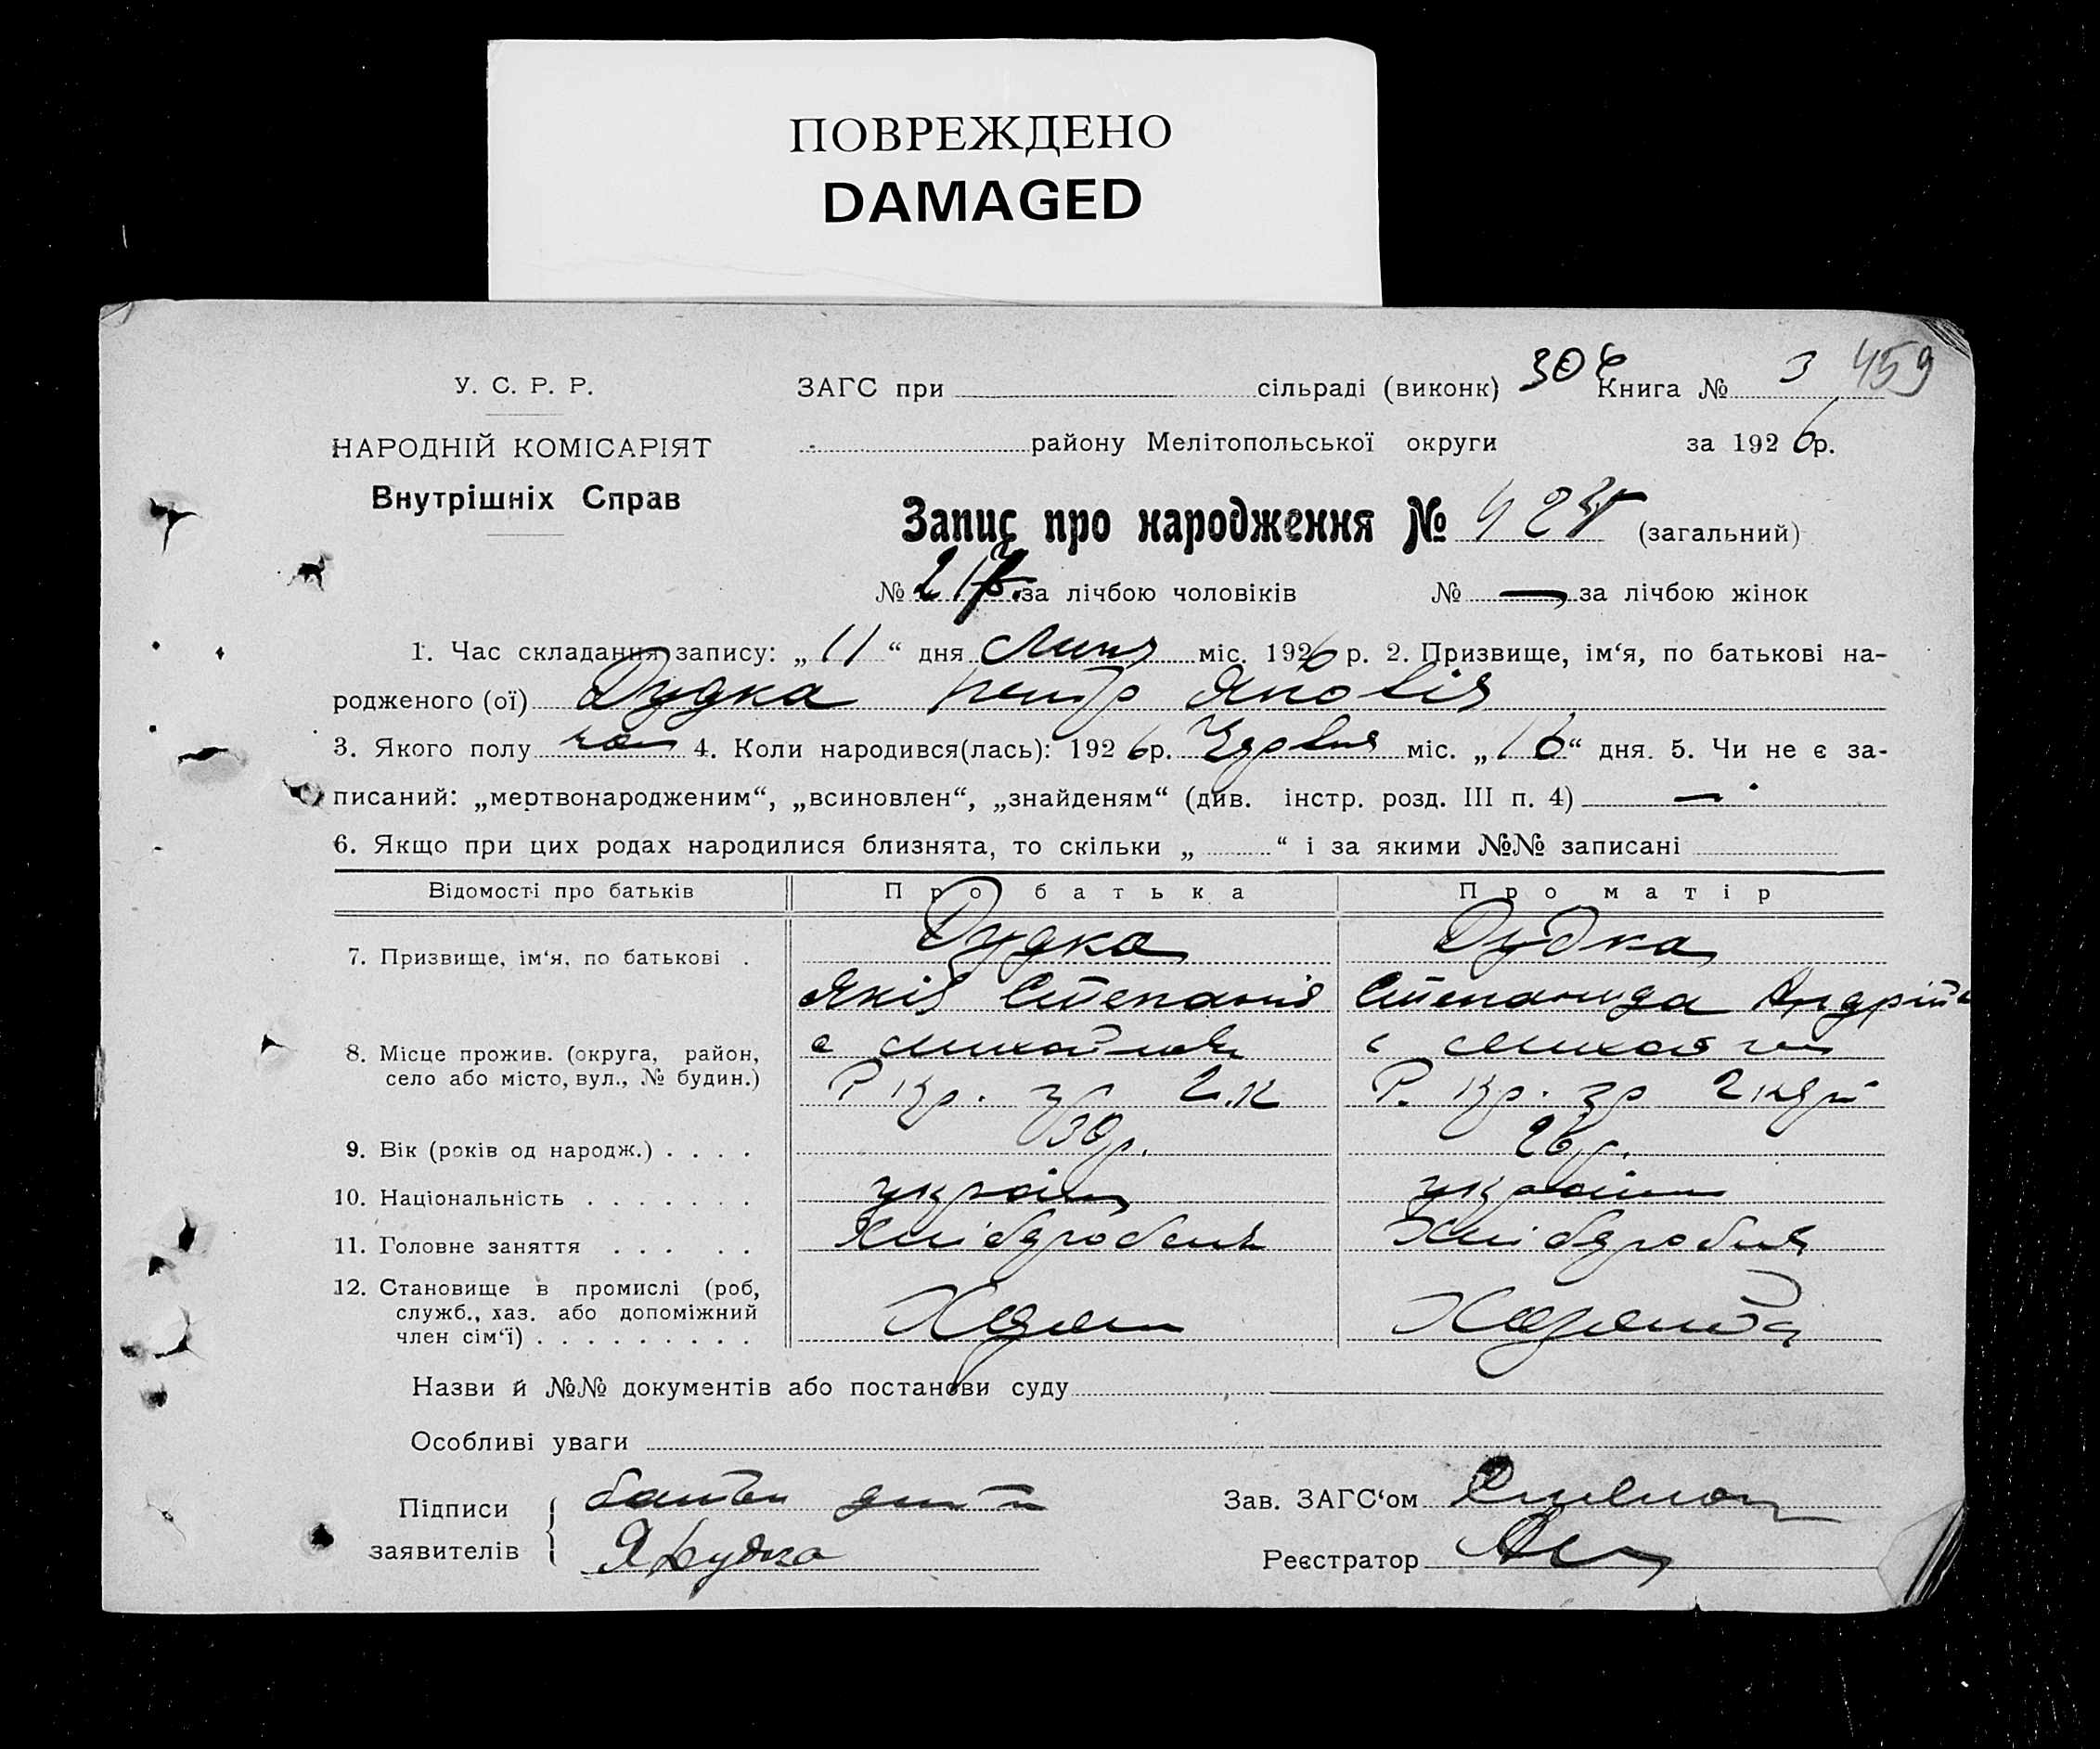 ПОВРЕЖДЕНО
DAMAGED
459
У. С. Р. Р.
ЗАГС при сільраді (виконк) Книга № 3
НАРОДНІЙ КОМІСАРІЯТ
району Мелітопольської округи за 1926р.
Внутрішніх Справ
Запис про народження № (загальний)
№ 217 за лічбою чоловіків № — за лічбою жінок
1. Час складання запису: „11“ дня Липя міс. 1926 р. 2. Призвище, ім‘я, по батькові на-
родженого (ої) Дудка Петр
3. Якого полу чол 4. Коли народився(лась): 1926р. Червня міс. „16“ дня. 5. Чи не є за-
писаний: „мертвонародженим“, „всиновлен“, „знайденям“ (див. інстр. розд. III п. 4) —
6. Якщо при цих родах народилися близнята, то скільки „ “ і за якими №№ записані
Відомості про батьків Про батька Про матір
7. Призвище, ім‘я, по батькові . Дудка Дудка
Степанид Степанида Андрій
8. Місце прожив. (округа, район, с с
село або місто, вул., № будин.) Р. Кр. Р. Кр.
9. Вік (років од народж.) . . . . 30р. 26р.
10. Національність . . . . . . . україн україин
11. Головне заняття . . . . . Хліборобсня Хліборобня
12. Становище в промислі (роб,
служб., хаз. або допоміжний
член сім‘ї) . . . . . . . . . Хазяін Хазяика
Назви й №№ документів або постанови суду
Особливі уваги
Підписи батьки
заявителів Я Дудка
Зав. ЗАГС‘ом
Реєстратор